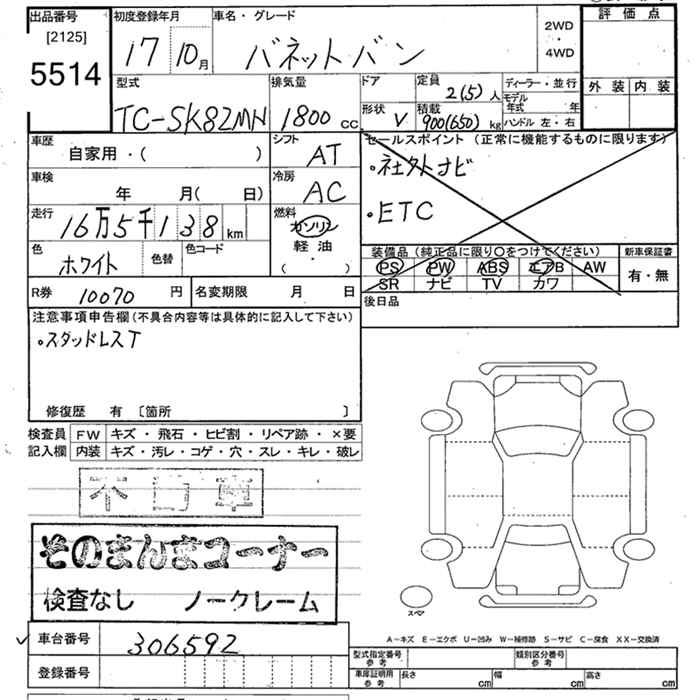 出品番号
[2125]
5514
初度登録年月
17 10月
車名・グレード
バネットバン
2WD
・
4WD
評価点
外装 内装
型式
TC-SK82MN
排気量
1800 cc
ドア
形状
V
定員
2(5) 人
積載
900(650) kg
ディーラー・並行
モデル
年式 年
ハンドル 左・右
車歴
自家用・( )
シフト
AT
車検
年 月( 日)
冷房
AC
走行
16万5千138 km
燃料
ガソリン
軽油
( ・ )
色
ホワイト
色替
色コード
R券 10070 円
名変期限 月 日
セールスポイント (正常に機能するものに限ります)
・社外ナビ
・ETC
装備品 (純正品に限り〇をつけてください)
PS PW ABS エアB AW
SR ナビ TV カワ
新車保証書
有・無
後日品
注意事項申告欄(不具合内容等は具体的に記入して下さい)
・スタッドレスT
修復歴 有 〔箇所 〕
検査員 FW キズ・飛石・ヒビ割・リペア跡・×要
記入欄 内装 キズ・汚レ・コゲ・穴・スレ・キレ・破レ
そのまんまコーナー
検査なし ノークレーム
車台番号 306592
登録番号
スペア
A-キズ E-エクボ U-凹み W-補修跡 S-サビ C-腐食 XX-交換済
型式指定番号
参考
類別区分番号
参考
車庫証明用
参考
長さ cm 幅 cm 高さ cm